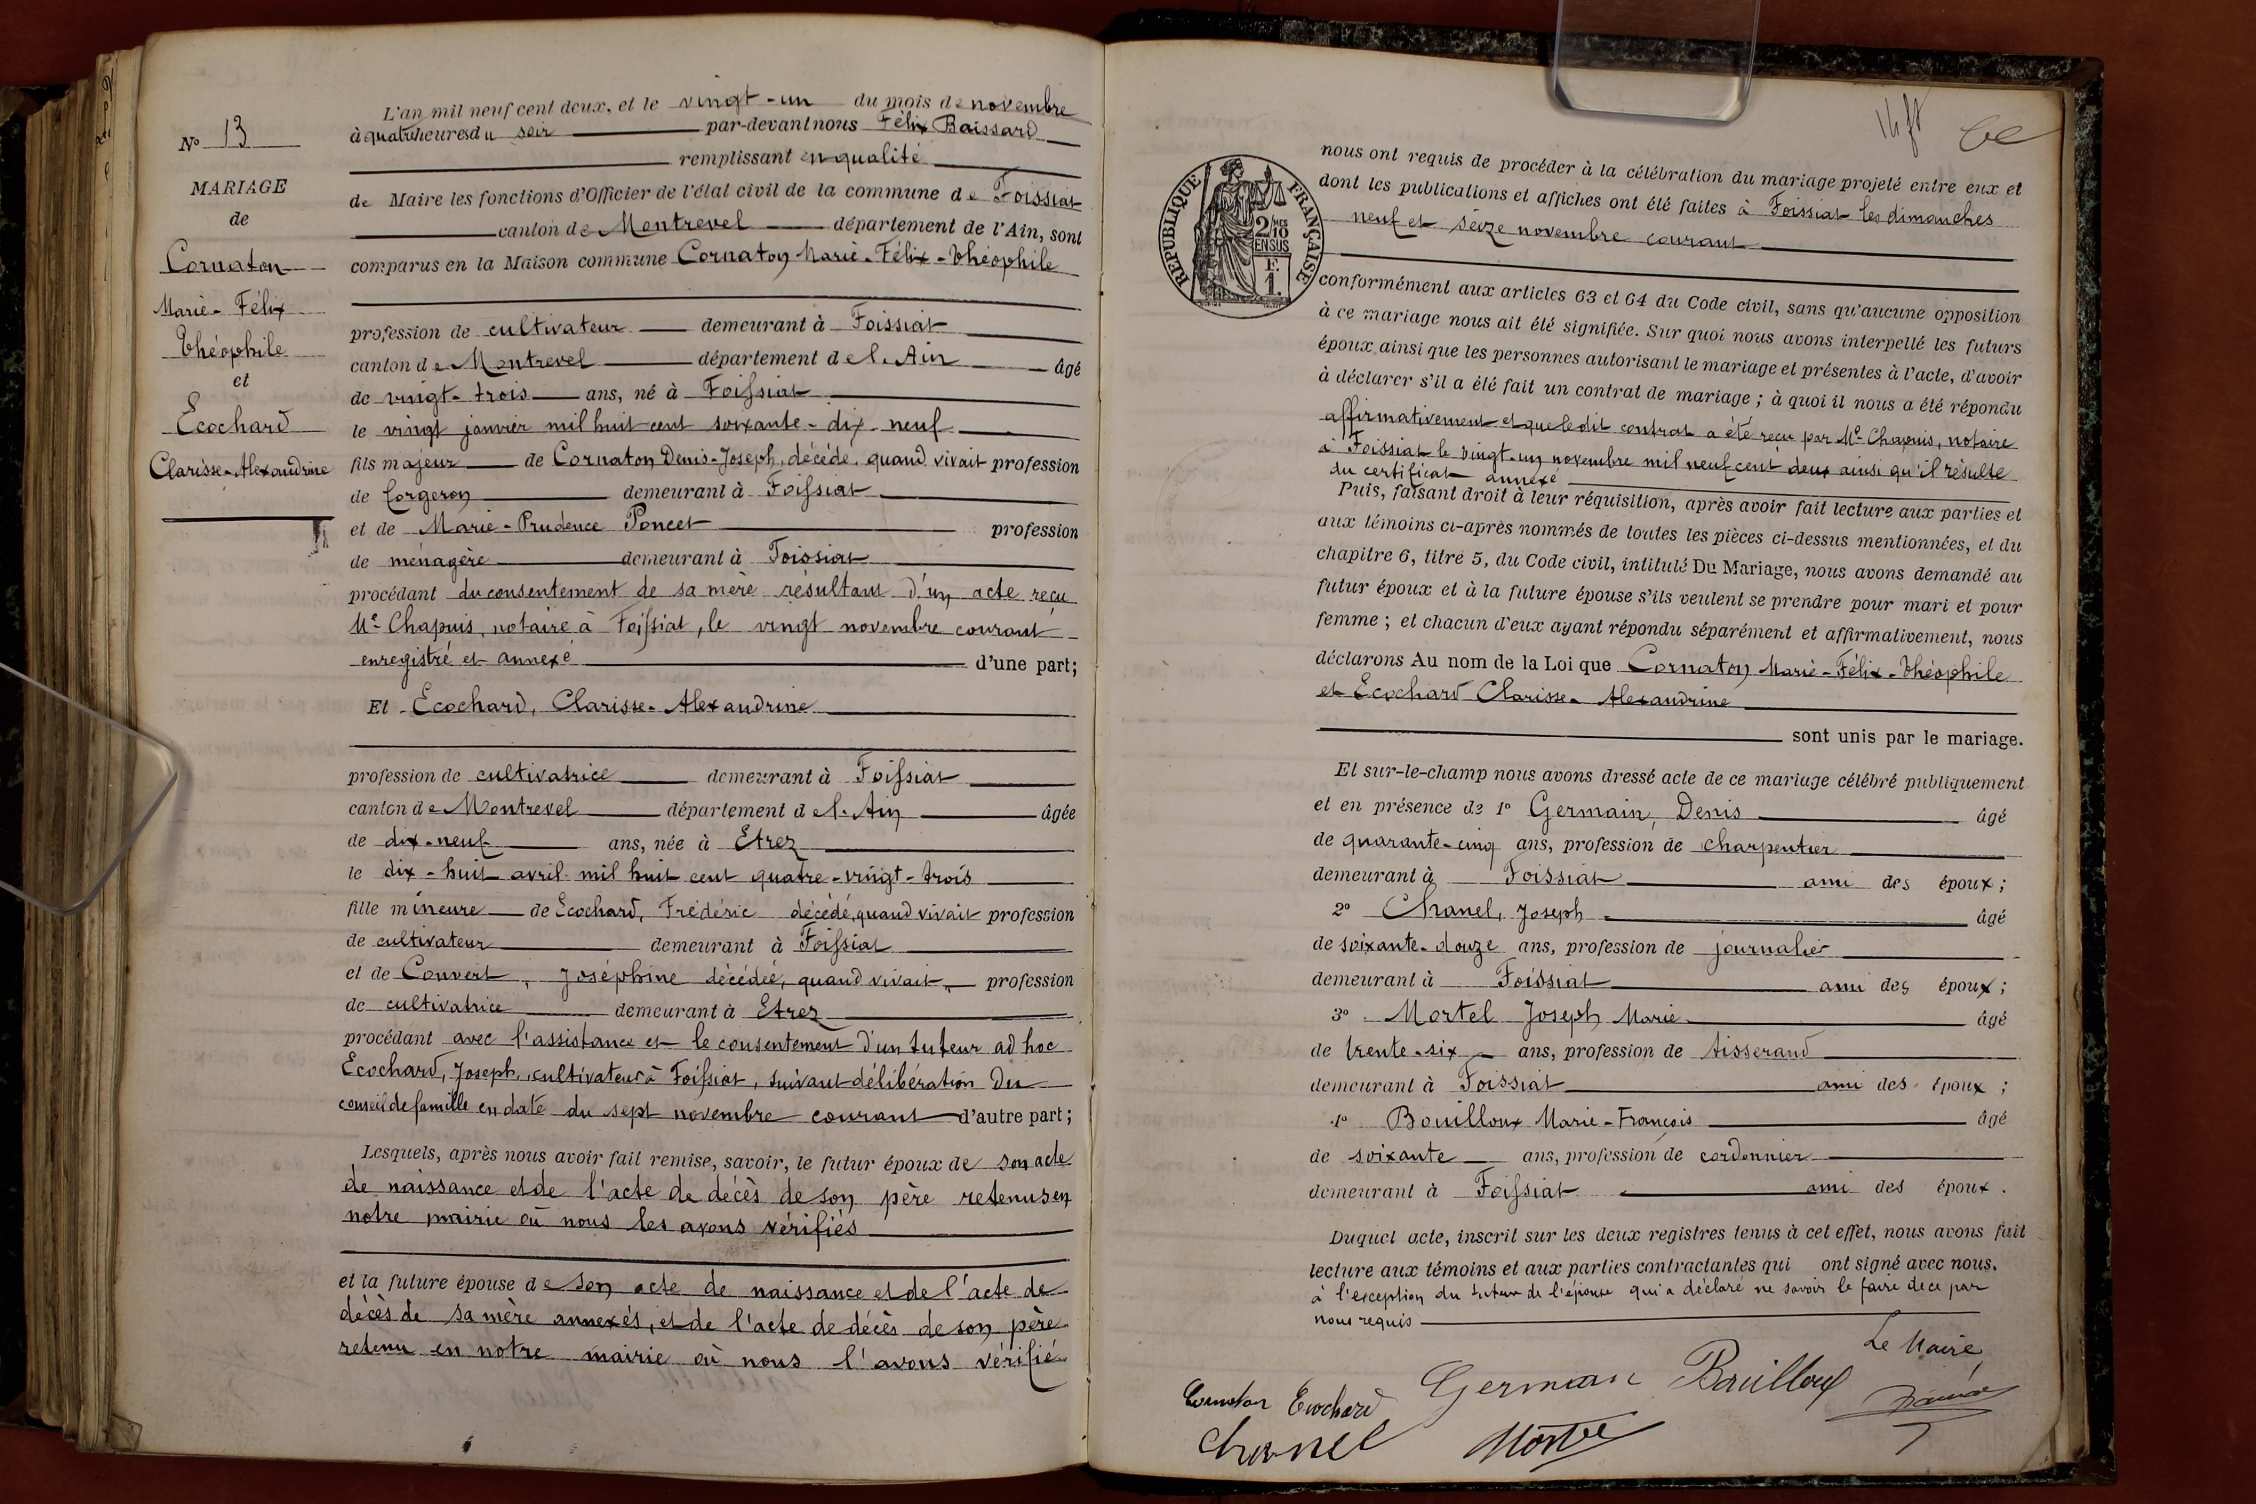 N° 13
MARIAGE
de
Cornaton
Marie-Félix
Théophile
et
Ecochard
Clarisse-Alexandrine
L'an mil neuf cent deux, et le vingt-un du mois de novembre
à quatre heures du soir par-devant nous Félix Baissard
remplissant en qualité
de Maire les fonctions d'Officier de l'état civil de la commune de Foissiat
canton de Montrevel département de l'Ain, sont
comparus en la Maison commune Cornaton Marie-Félix-Théophile
profession de cultivateur demeurant à Foissiat
canton de Montrevel département de l'Ain âgé
de vingt-trois ans, né à Foissiat
le vingt janvier mil huit cent soixante-dix-neuf
fils majeur de Cornaton Denis-Joseph, décédé, quand vivait profession
de forgeron demeurant à Foissiat
et de Marie-Prudence Poncet profession
de ménagère demeurant à Foissiat
procédant du consentement de sa mère résultant d'un acte reçu
Me Chapuis, notaire à Foissiat, le vingt novembre courant
enregistré et annexé d'une part;
Et Ecochard, Clarisse-Alexandrine
profession de cultivatrice demeurant à Foissiat
canton de Montrevel département de l'Ain âgée
de dix-neuf ans, née à Etrez
le dix-huit avril mil huit cent quatre-vingt-trois
fille mineure de Ecochard, Frédéric décédé, quand vivait profession
de cultivateur demeurant à Foissiat
et de Convert, Joséphine décédée, quand vivait, profession
de cultivatrice demeurant à Etrez
procédant avec l'assistance et le consentement d'un tuteur ad hoc
Ecochard, Joseph, cultivateur à Foissiat, suivant délibération du
conseil de famille en date du sept novembre courant d'autre part;
Lesquels, après nous avoir fait remise, savoir, le futur époux de son acte
de naissance et de l'acte de décès de son père retenus en
notre mairie où nous les avons vérifiés
et la future épouse de son acte de naissance et de l'acte de
décès de sa mère annexés, et de l'acte de décès de son père
retenu en notre mairie où nous l'avons vérifié
RÉPUBLIQUE FRANÇAISE
2/10 MES
EN SUS
F.
1.
nous ont requis de procéder à la célébration du mariage projeté entre eux et
dont les publications et affiches ont été faites à Foissiat les dimanches
neuf et seize novembre courant
conformément aux articles 63 et 64 du Code civil, sans qu'aucune opposition
à ce mariage nous ait été signifiée. Sur quoi nous avons interpellé les futurs
époux ainsi que les personnes autorisant le mariage et présentes à l'acte, d'avoir
à déclarer s'il a été fait un contrat de mariage ; à quoi il nous a été répondu
affirmativement et que le dit contrat a été reçu par Me Chapuis, notaire
à Foissiat le vingt-un novembre mil neuf cent deux ainsi qu'il résulte
du certificat annexé
Puis, faisant droit à leur réquisition, après avoir fait lecture aux parties et
aux témoins ci-après nommés de toutes les pièces ci-dessus mentionnées, et du
chapitre 6, titre 5, du Code civil, intitulé Du Mariage, nous avons demandé au
futur époux et à la future épouse s'ils veulent se prendre pour mari et pour
femme ; et chacun d'eux ayant répondu séparément et affirmativement, nous
déclarons Au nom de la Loi que Cornaton Marie-Félix-Théophile
et Ecochard Clarisse-Alexandrine
sont unis par le mariage.
Et sur-le-champ nous avons dressé acte de ce mariage célébré publiquement
et en présence de 1° Germain, Denis âgé
de quarante-cinq ans, profession de charpentier
demeurant à Foissiat ami des époux ;
2° Chanel, Joseph âgé
de soixante-douze ans, profession de journalier
demeurant à Foissiat ami des époux ;
3° Mortel Joseph Marie âgé
de trente-six ans, profession de tisserand
demeurant à Foissiat ami des époux ;
4° Bouilloux Marie-François âgé
de soixante ans, profession de cordonnier
demeurant à Foissiat ami des époux.
Duquel acte, inscrit sur les deux registres tenus à cet effet, nous avons fait
lecture aux témoins et aux parties contractantes qui ont signé avec nous.
à l'exception du tuteur de l'épouse qui a déclaré ne savoir le faire de ce par
nous requis
Le Maire,
Cornaton Ecochard Germain Bouilloux
Chanel